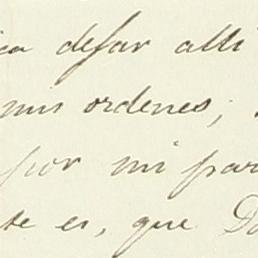 dejar alli
mis ordenes;
por mi par
te es, que D